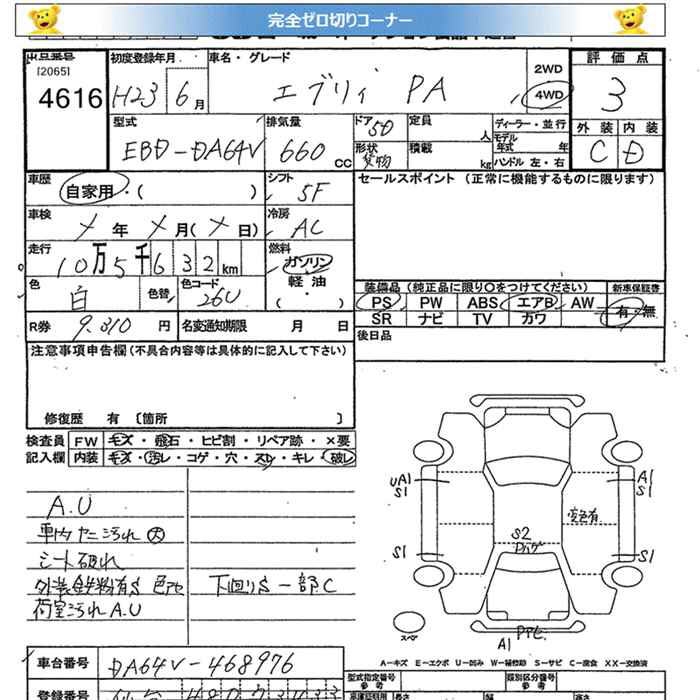 完全ゼロ切りコーナー
出品番号 初度登録年月 車名・グレード 評価点
[2065]
4616 H23 6月 エブリィ PA 2WD 4WD 3
型式 排気量 ドア 定員 ディーラー・並行 外装 内装
EBD-DA64V 660 CC 5D 人 モデル年式 年 C D
形状 貨物 積載 kg ハンドル 左・右
車歴 自家用・( ) シフト 5F セールスポイント (正常に機能するものに限ります)
車検 メ年 メ月(メ日) 冷房 AC
走行 10万5千632km 燃料 ガソリン
軽油
( ・ )
色 白 色替 色コード 26U
装備品 (純正品に限り〇をつけてください) 新車保証書
PS PW ABS エアB AW 有・無
SR ナビ TV カワ
R券 9.310円 名変通知期限 月 日 後日品
注意事項申告欄(不具合内容等は具体的に記入して下さい)
修復歴 有 〔箇所 〕
検査員 FW キズ・飛石・ヒビ割・リペア跡・×要
記入欄 内装 キズ・汚レ・コゲ・穴・スレ・キレ・破レ
A.U
車内ヤニ汚れ 大
シート破れ
外装鉄粉有S 色アセ 下回りS 一部C
荷室汚れ A.U
UA1 S1 A1 S1
変色有
S2
S1 S1
スペア
A1
A-キズ E-エクボ U-凹み W-補修跡 S-サビ C-腐食 XX-交換済
車台番号 DA64V-468976 型式指定番号 参考 類別区分番号 参考
登録番号 長さ 幅 高さ